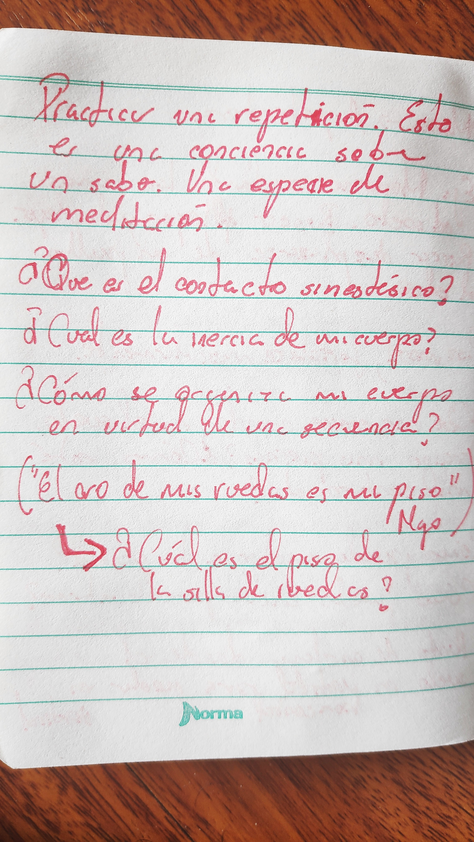 Practicar una repetición. Esto
es una conciencia sobre
un saber. Una especie de
meditación.
¿Que es el contacto sinestésico?
¿Cual es la inercia de mi cuerpo?
¿Cómo se organiza mi cuerpo
en virtud de una secuencia?
("El aro de mis ruedas es mi piso"
/Mgo)
¿Cuál es el piso de
la silla de ruedas?
Norma